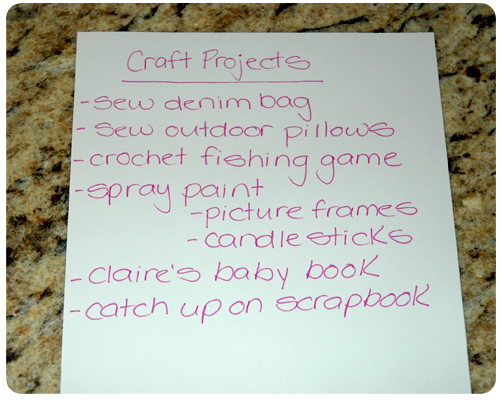 Craft Projects
-sew denim bag
-sew outdoor pillows
-crochet fishing game
-spray paint
-picture frames
-candlesticks
-claire's baby book
-catch up on scrapbook